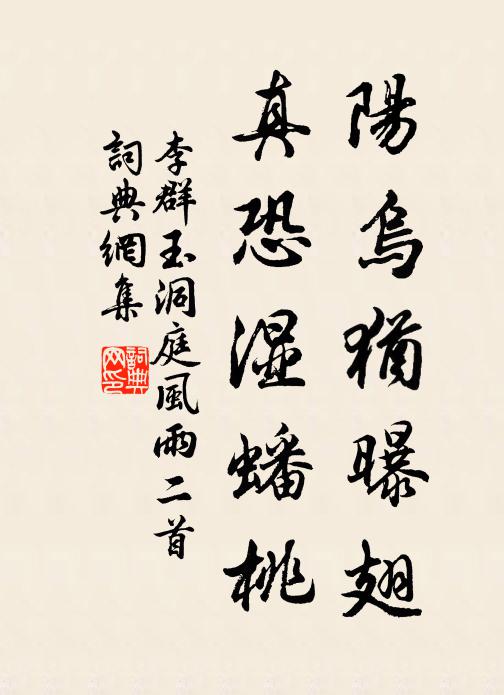 陽烏猶曝翅
真恐濕蟠桃
李群玉洞庭風雨二首
詞典網集
詞典网印